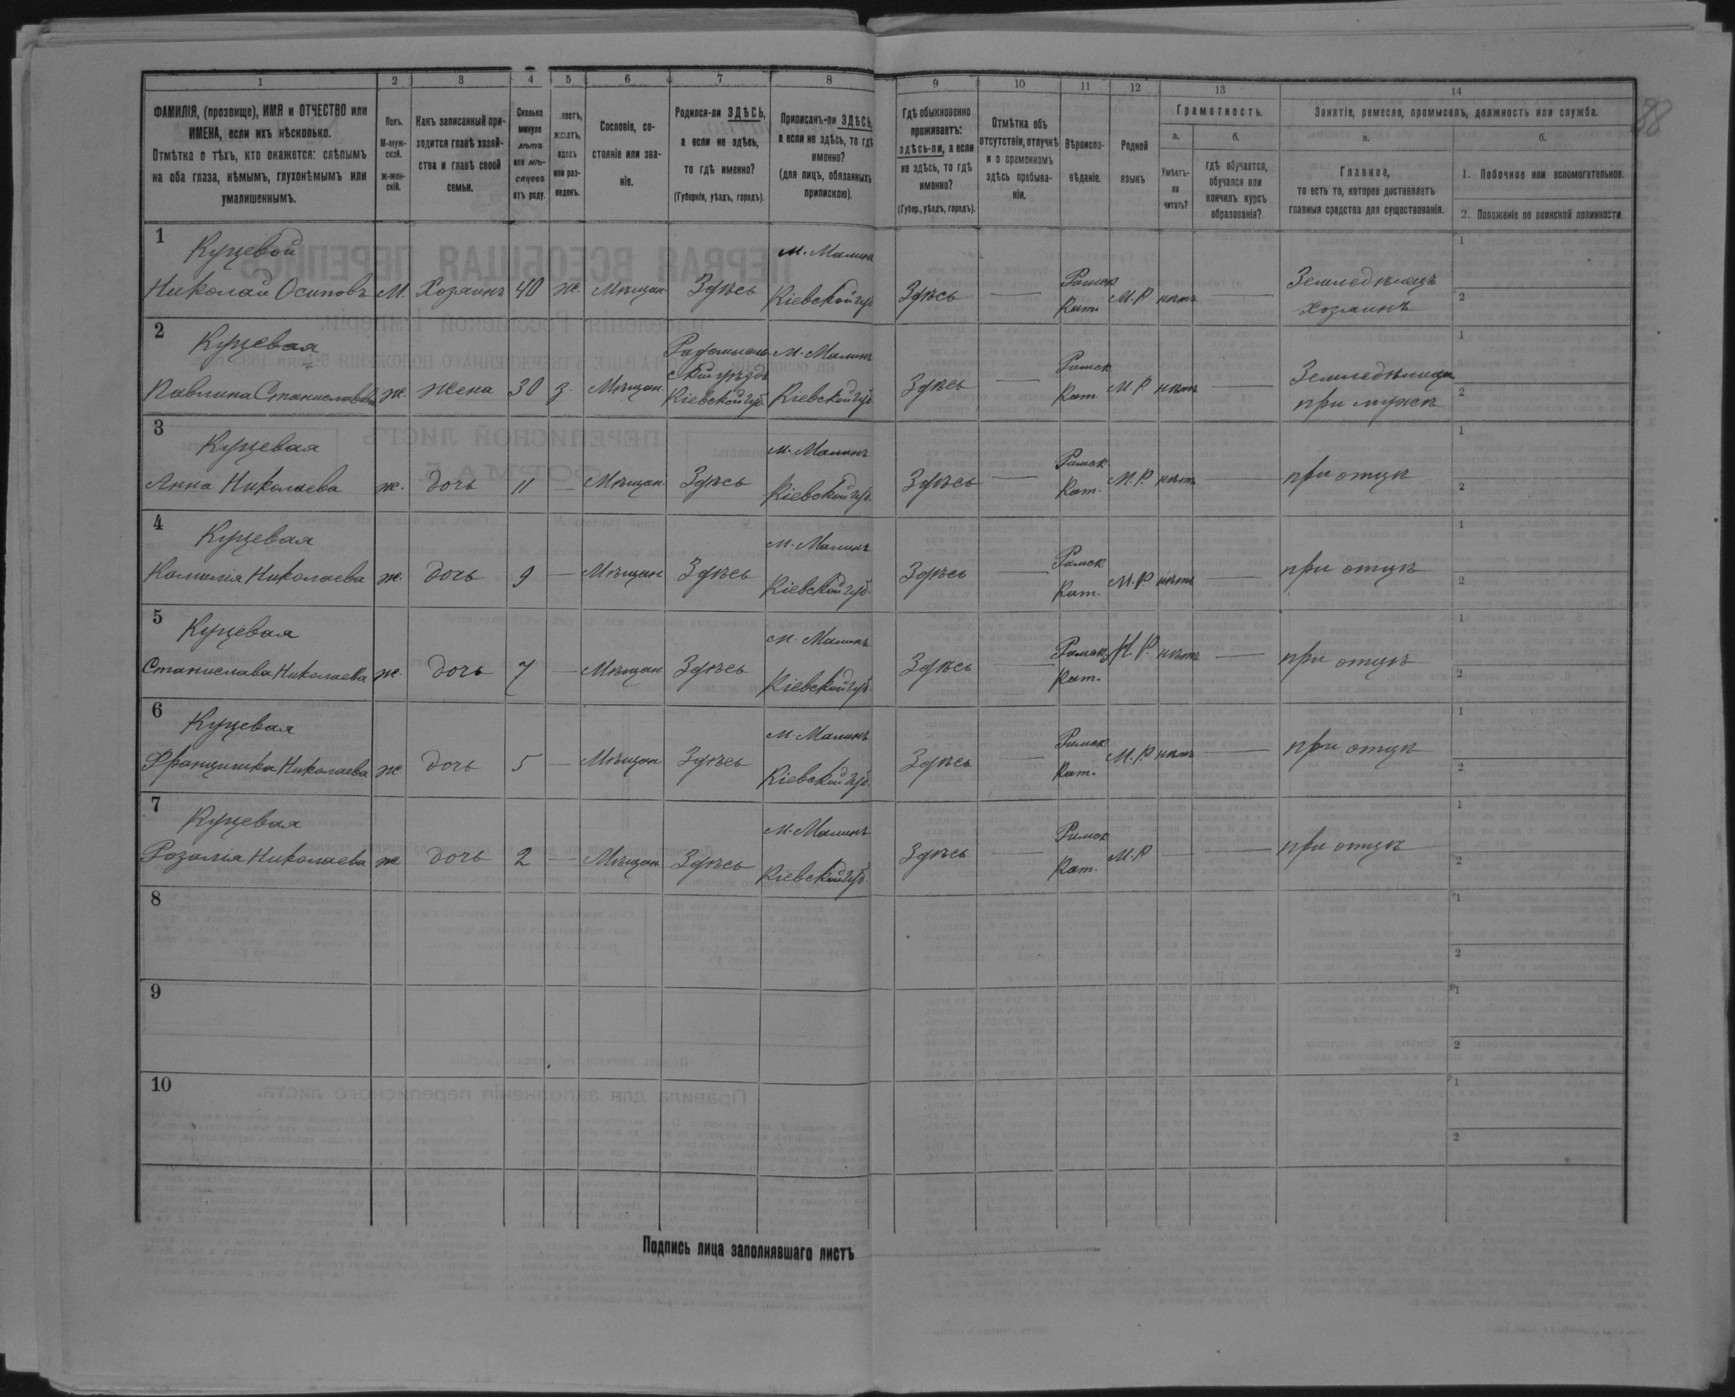 1 2 3 4 5 6 7 8 9 10 11 12 13 14
ФАМИЛІЯ, (прозвище), ИМЯ и ОТЧЕСТВО или ИМЕНА, если ихъ нѣсколько.
Отмѣтка о тѣхъ, кто окажется: слѣпымъ на оба глаза, нѣмымъ, глухонѣмымъ или умалишеннымъ.
Полъ. М-мужской. Ж-женскій.
Какъ записанный приходится главѣ хозяйства и главѣ своей семьи.
Сколько минуло лѣтъ или мѣсяцевъ отъ роду.
Сословіе, состояніе или званіе.
Родился-ли ЗДѢСЬ, а если не здѣсь, то гдѣ именно?
(Губернія, уѣздъ, городъ).
Приписанъ-ли ЗДѢСЬ, а если не здѣсь, то гдѣ именно?
(для лицъ, обязанныхъ припискою).
Гдѣ обыкновенно проживаетъ: здѣсь-ли, а если не здѣсь, то гдѣ именно?
(Губер., уѣздъ, городъ).
Отмѣтка объ отсутствіи, отлучкѣ и о временномъ здѣсь пребываніи.
Вѣроисповѣданіе.
Родной языкъ
Грамотность.
а. Умѣетъ-ли читать?
б. гдѣ обучается, обучался или кончилъ курсъ образованія?
Занятіе, ремесло, промыселъ, должность или служба.
а. Главное, то есть то, которое доставляетъ главныя средства для существованія.
б.
1. Побочное или вспомогательное.
2. Положеніе по воинской повинности.
88
1 Куцевой м. Малинъ Римск. 1
Николай Осиповъ М. Хозяинъ 40 ж. Мѣщан. Здѣсь Кіевской губ. Здѣсь — Кат. М.Р. нѣтъ — Земледѣлецъ хозяинъ 2
2 Куцевая Радомысльскій уѣздъ м. Малинъ Римск. 1
Павлина Станиславова ж. жена 30 з. Мѣщан. Кіевской губ. Кіевской губ. Здѣсь — Кат. М.Р. нѣтъ — Земледѣлица при мужѣ 2
3 Куцевая м. Малинъ Римск. 1
Анна Николаева ж. дочь 11 — Мѣщан. Здѣсь Кіевской губ. Здѣсь — Кат. М.Р. нѣтъ — при отцѣ 2
4 Куцевая м. Малинъ Римск. 1
Камилія Николаева ж. дочь 9 — Мѣщан. Здѣсь Кіевской губ. Здѣсь — Кат. М.Р. нѣтъ — при отцѣ 2
5 Куцевая м. Малинъ Римск. 1
Станислава Николаева ж. дочь 7 — Мѣщан. Здѣсь Кіевской губ. Здѣсь — Кат. М.Р. нѣтъ — при отцѣ 2
6 Куцевая м. Малинъ Римск. 1
Францишка Николаева ж дочь 5 — Мѣщан. Здѣсь Кіевской губ. Здѣсь — Кат. М.Р. нѣтъ — при отцѣ 2
7 Куцевая м. Малинъ Римск. 1
Розалія Николаева ж дочь 2 — Мѣщан. Здѣсь Кіевской губ. Здѣсь — Кат. М.Р — — при отцѣ 2
8 1
2
9 1
2
10 1
2
Подпись лица заполнявшаго листъ